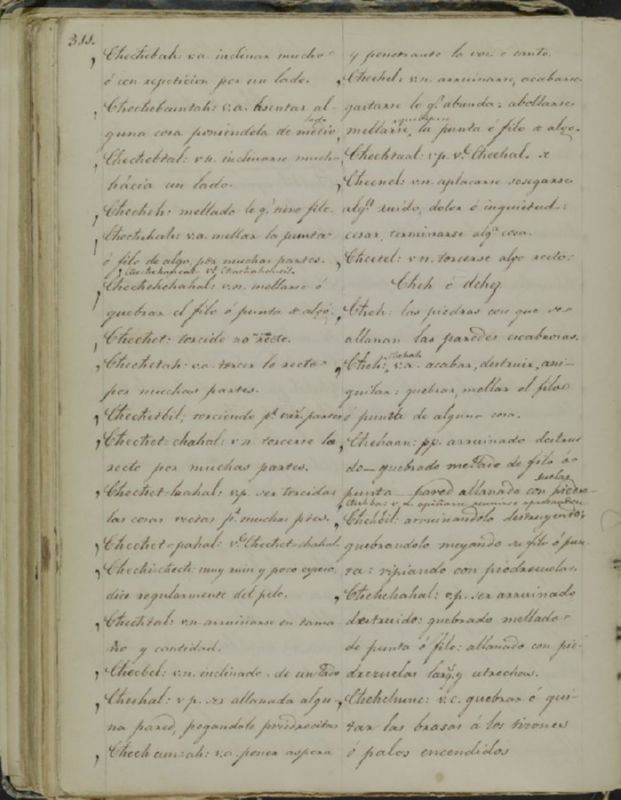 311.
Chechebah: v.a. inclinar mucho
ó con repeticion por un lado.
Chochebcuntah: v.a. asentar al-
guna cosa poniendola de medio lado
Chechebtal: v.n. inclinarse mucho
hácia un lado.
Checheh: mellado lo q.e tiene filo.
Chechehah: v.a. mellar la punta
ó filo de algo, por muchas partes.
Chechehchahal: v.n. mellarse ó
quebrar el filo ó punta de algo.
Chechet: torcido no recto.
Chechetah: v.a. torcer lo recto
por muchas partes.
Chechetbil: torciendo p.r var.s partes
Chechet chahal: v.n. torcerse lo
recto por muchas partes.
Chechet-hahal: v.p. ser torcidas
las cosas rectas p.r muchas ptes.
Chechet-pahal: v.e Chechet-chahal.
Chechi-chech: muy ruin y poco espeso,
dice regularmente del pelo.
Chechtal: v.n. arruinarse en tama-
ño y cantidad.
Cheebel: v.n. inclinado de un lado
Cheehal: v.p. ser allanada algu-
na pared, pegandole piedrecitas
Cheech cunzah: v.a. poner aspera
y penetrante la voz ó canto.
Cheehel: v.n. arruinarse, acabarse
gastarse lo q.e abunda: abollarse
mellarse, la punta ó filo de algo.
Cheehtaal: v.p. v.e Cheehal.
Cheenel: v.n. aplacarse sosegarse
alg.n ruido, dolor é inquietud:
cesar, terminarse alg.a cosa.
Cheetel: v.n. torcerse algo recto:
Cheh ó dcheh
Cheh: las piedras con que se
allanan las paredes escabrosas.
Cheh: chehah v.a. acabar, destruir, ani-
quilar: quebrar, mellar el filo
ó punta de alguna cosa.
Chehaan: pp. arruinado destrui
do_ quebrado mellado de filo ó
punta_ pared allanada con piedre-
zuelas
Chehbil: arruinandolo destruyendo,
quebrandolo mellando su filo ó pun-
ta: ripiando con piedrezuelas.
Chehchahal: v.p. ser arruinado
destruido: quebrado mellado
de punta ó filo: allanado con pie-
drezuelas larg.s y estrechas.
Chehchunc: v.c. quebrar ó qui-
tar las brasas á los tizones
ó palos encendidos